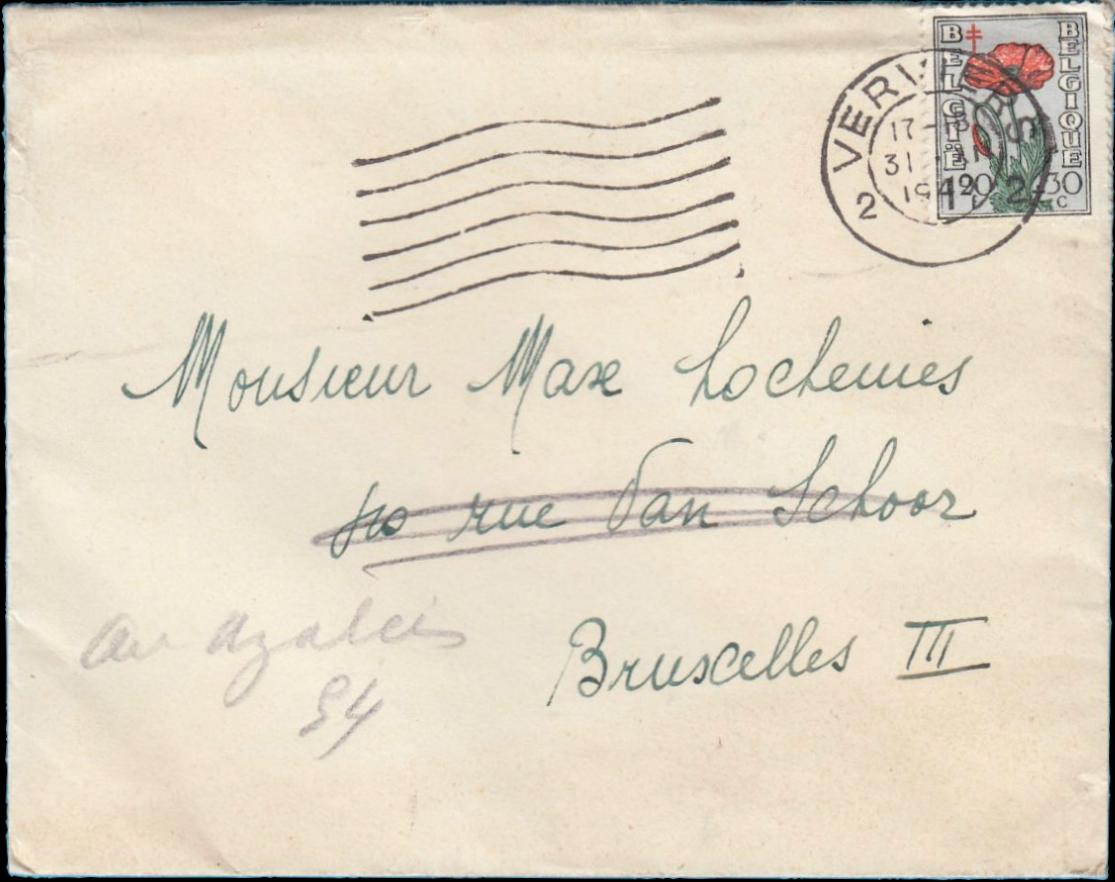 BELGIË BELGIQUE
1 20 F 30 C
VERVIERS
17-18
31
19
2 2
Monsieur Max Lochemies
rue Van Schoor
Bruxelles III
av Azalées
54